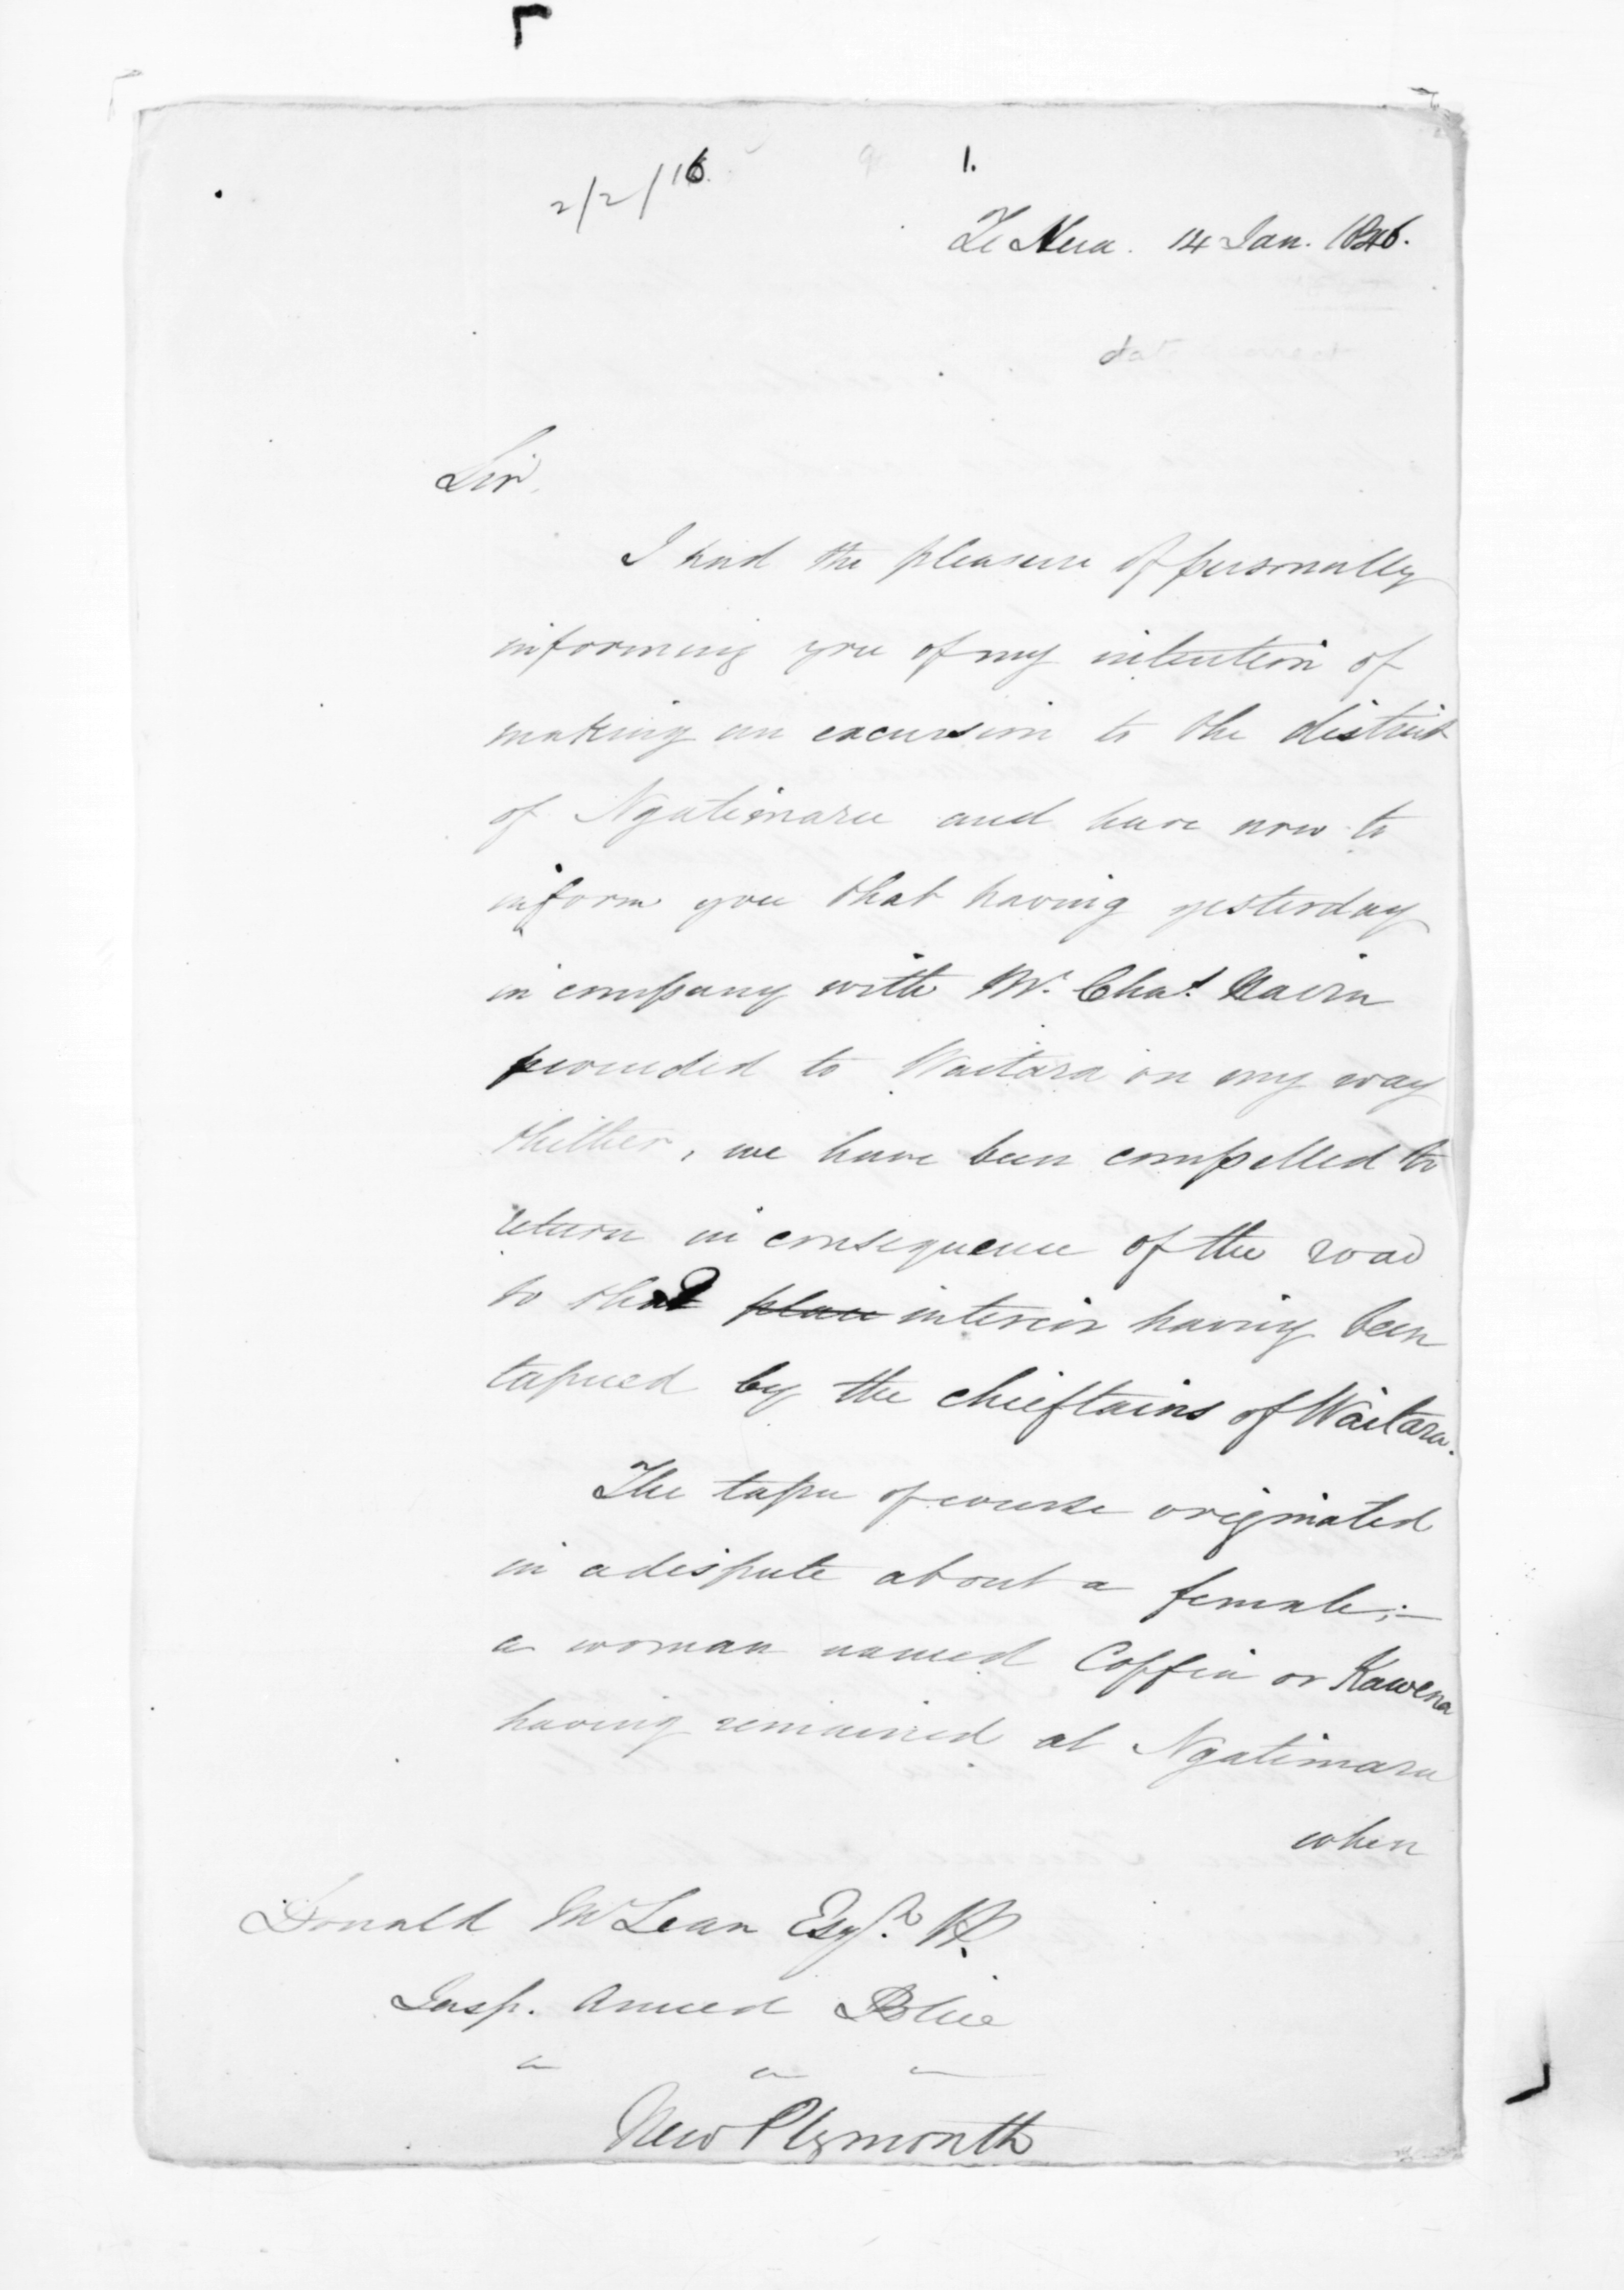 2/2/16
1.
Te Hua. 14 Jan. 1846.
Sir,
I had the pleasure of personally
informing you of my intention of
making an excursion to the district
of Ngatimaru and have now to
inform you that having yesterday
in company with Mr. Chas. Nairn
proceeded to Waitara on my way
thither, we have been compelled to
return in consequence of the road
to that place interior having been
tapued by the chieftains of Waitara.
The tapu of course originated
in a dispute about a female;—
a woman named Coffin or Kawena
having remained at Ngatimaru
when
Donald McLean Esqr.
Insp. Armed Police
New Plymouth